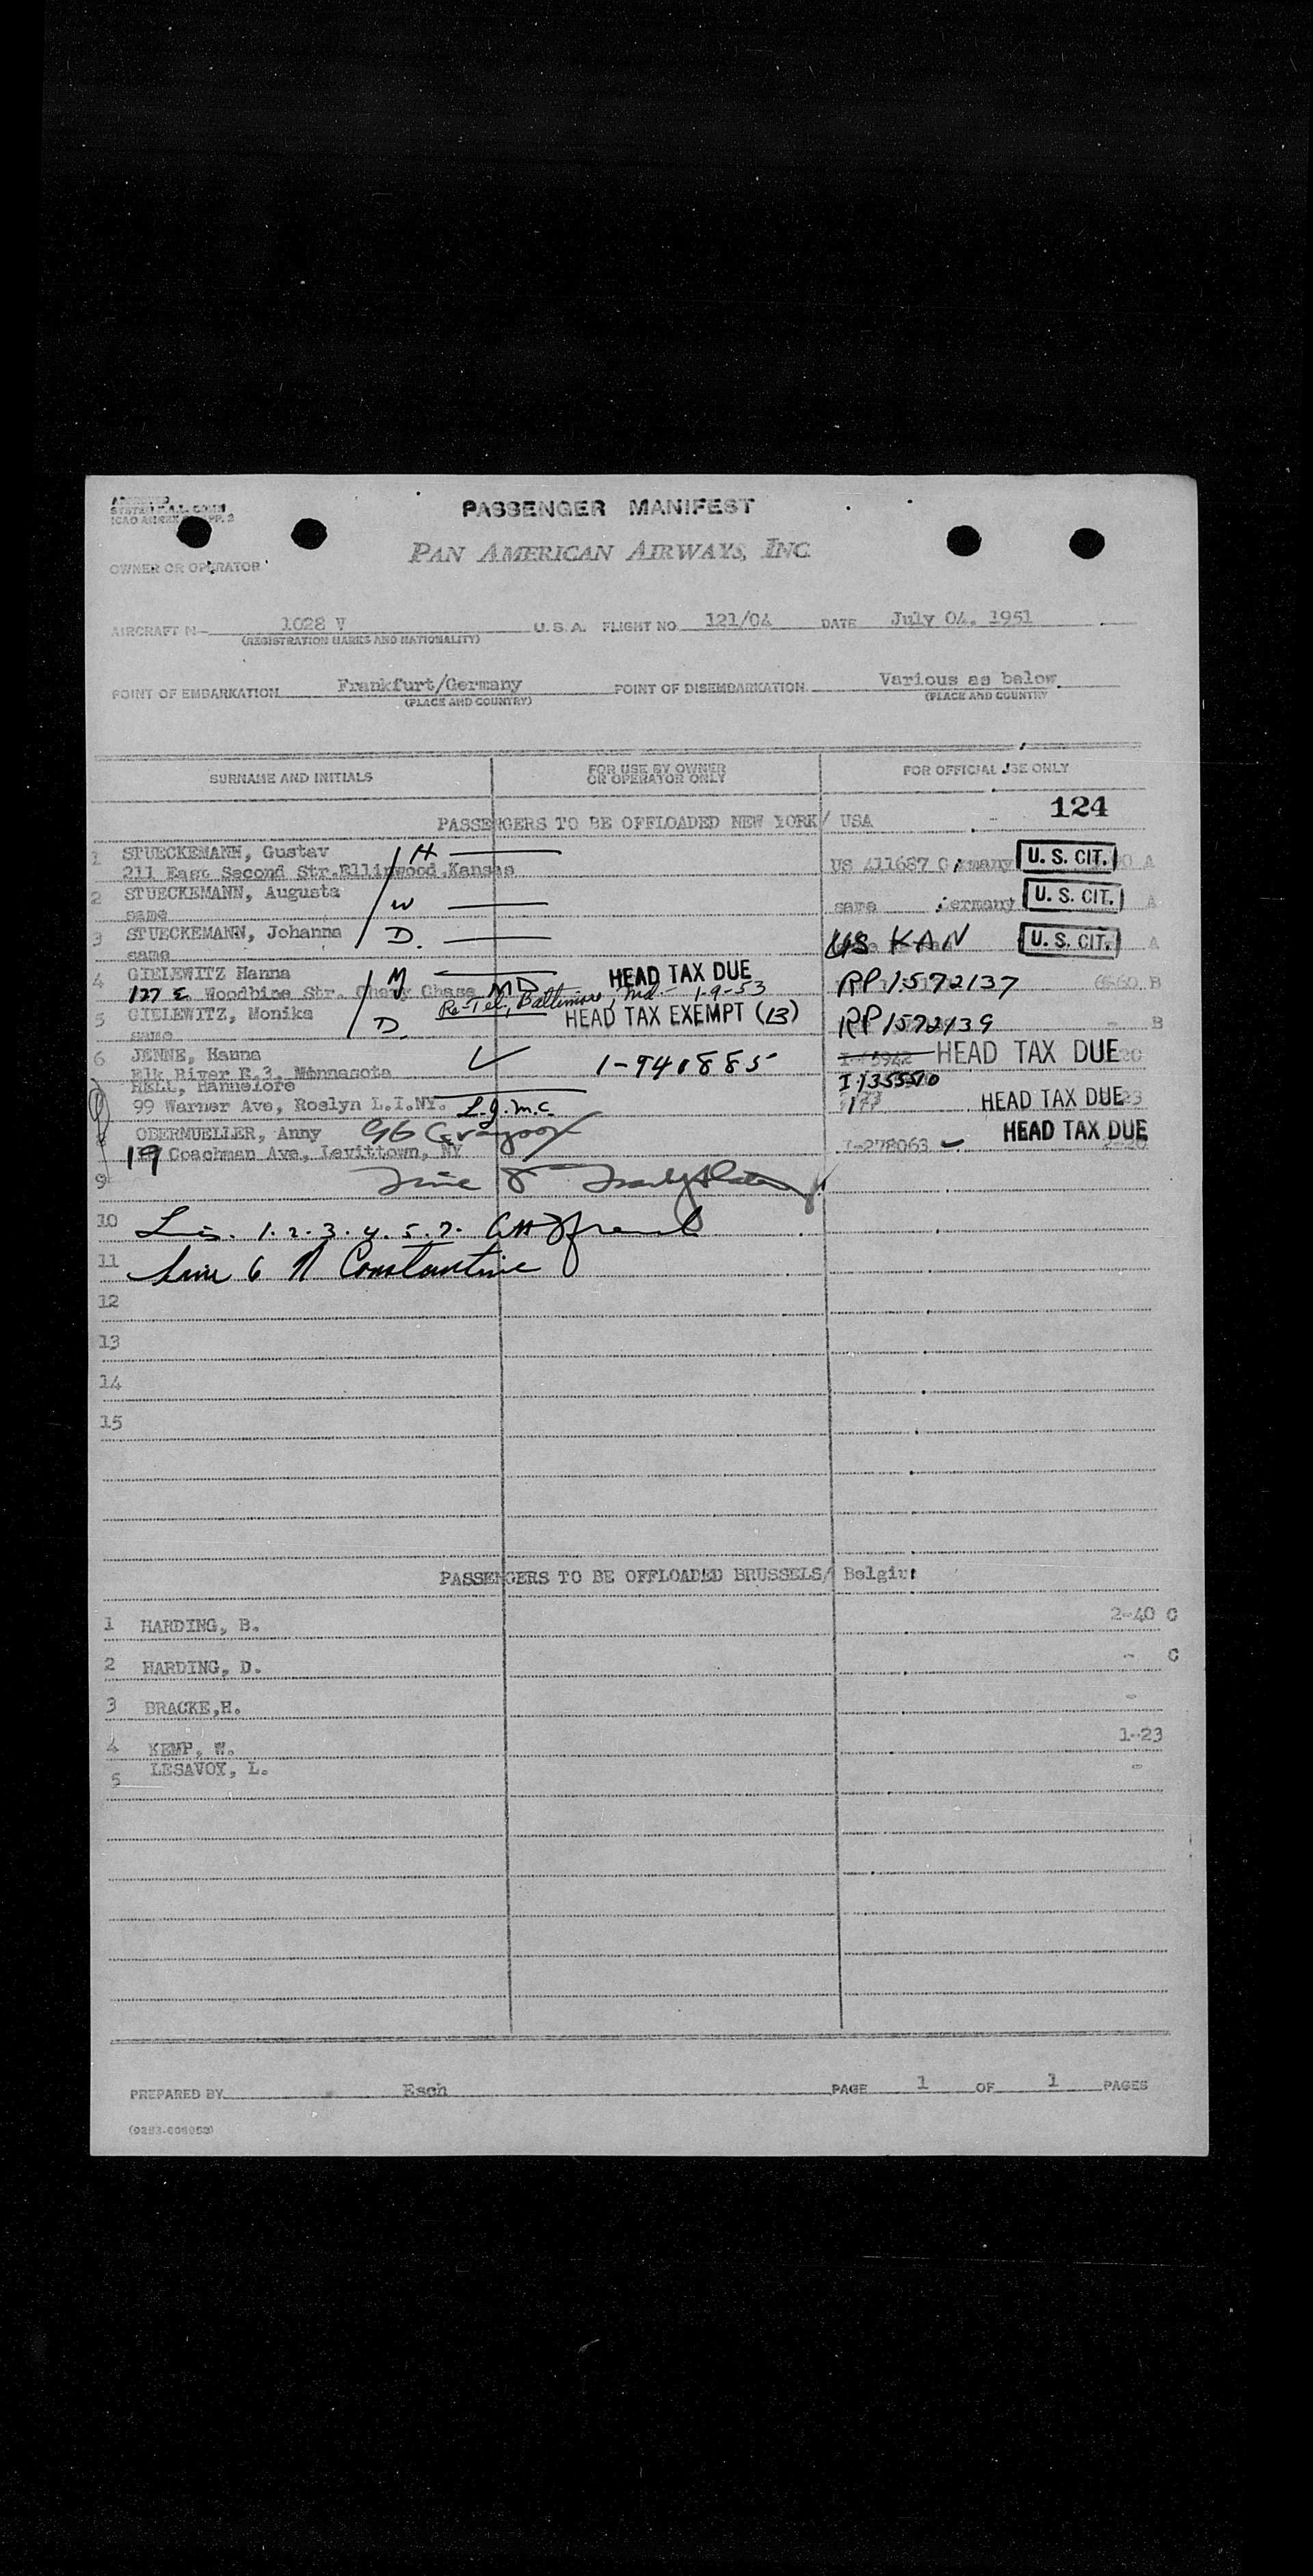 PASSENGER MANIFEST
PAN AMERICAN AIRWAYS, INC.
OWNER OR OPERATOR
AIRCRAFT N- 1028 V U.S.A. FLIGHT NO 121/04 DATE July 04, 1951
(REGISTRATION MARKS AND NATIONALITY)
POINT OF EMBARKATION Frankfurt/Germany POINT OF DISEMBARKATION Various as below
(PLACE AND COUNTRY) (PLACE AND COUNTRY
SURNAME AND INITIALS FOR USE BY OWNER OR OPERATOR ONLY FOR OFFICIAL USE ONLY
124
PASSENGERS TO BE OFFLOADED NEW YORK/ USA
1 STUECKEMANN, Gustav H
211 East Second Str.Ellinwood.Kansas US 411687 Germany U. S. CIT. A
2 STUECKEMANN, Augusta W
same same Germany U. S. CIT. A
3 STUECKEMANN, Johanna D.
same US KAN U. S. CIT. A
4 GIELEWITZ Hanna M HEAD TAX DUE
127 E Woodbine Str. Chevy Chase MD RP 1572137 B
Re-Tel, Baltimore, Md. - 1-9-53
5 GIELEWITZ, Monika D. HEAD TAX EXEMPT (13) RP 1572139 - B
same
6 JENNE, Hanna 1-940885 HEAD TAX DUE
Elk River R.3. Minnasota
HELL, Hannelore I-135570
99 Warner Ave, Roslyn L.I.NY. L.J.M.C. HEAD TAX DUE
8 OBERMUELLER, Anny HEAD TAX DUE
19 Coachman Ave, Levittown, NY I-278063
9 Line 8
10 Lis. 1.2.3.4.5.7.
11 Line 6 N Constantine
12
13
14
15
PASSENGERS TO BE OFFLOADED BRUSSELS/ Belgium
1 HARDING, B. 2-40 C
2 HARDING, D. - C
3 BRACKE,H. -
4 KEMP, W. 1-23
5 LESAVOY, L. -
PREPARED BY Esch PAGE 1 OF 1 PAGES